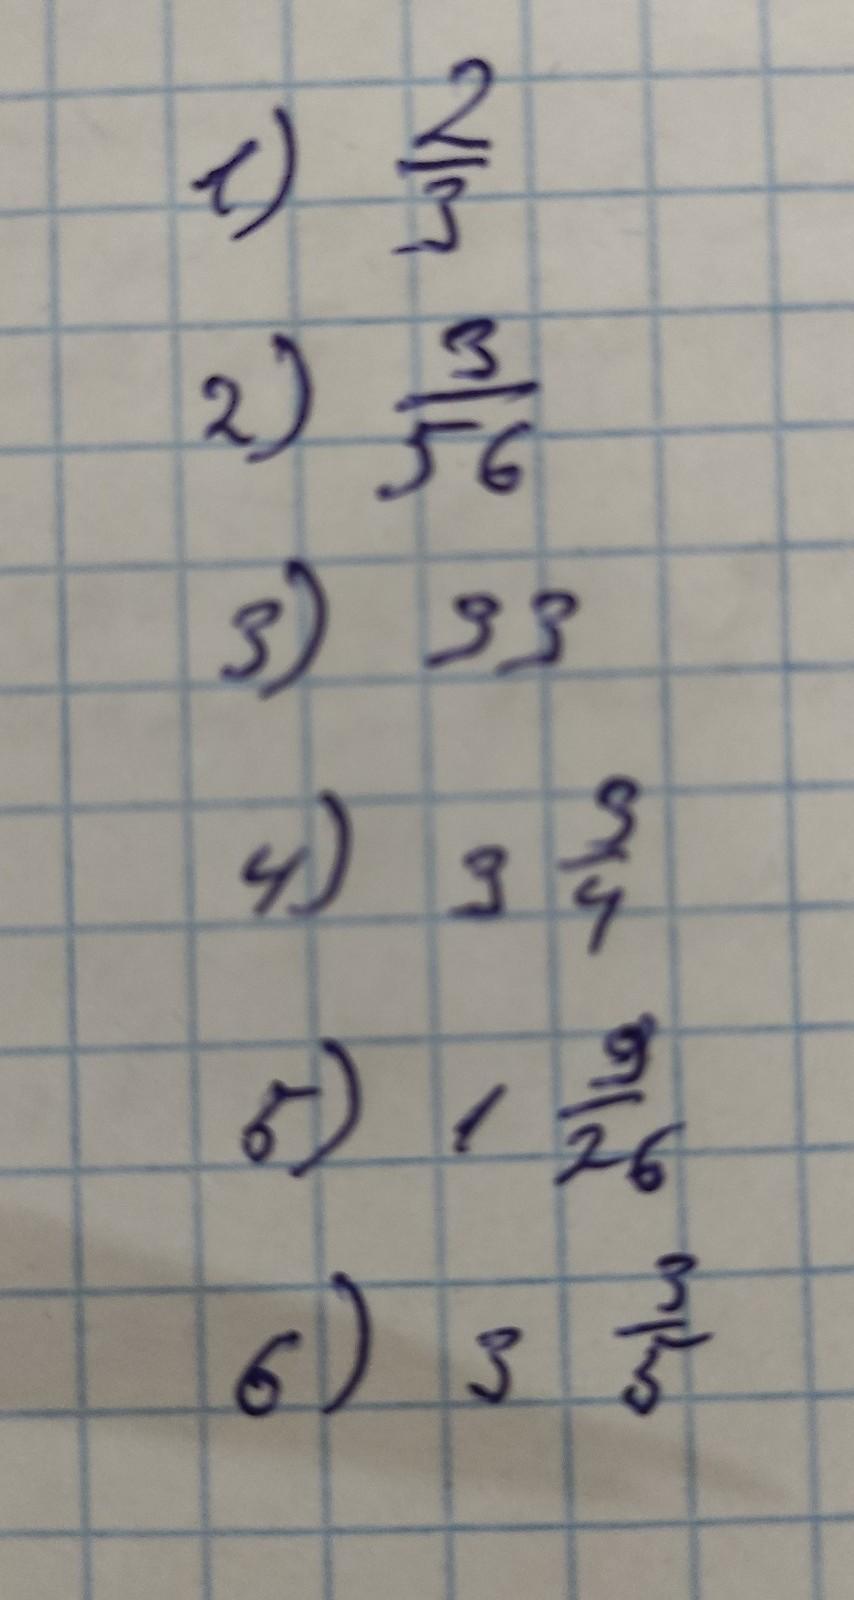 1) 2/3
2) 3/56
3) 33
4) 3 3/4
5) 1 9/26
6) 3 3/5